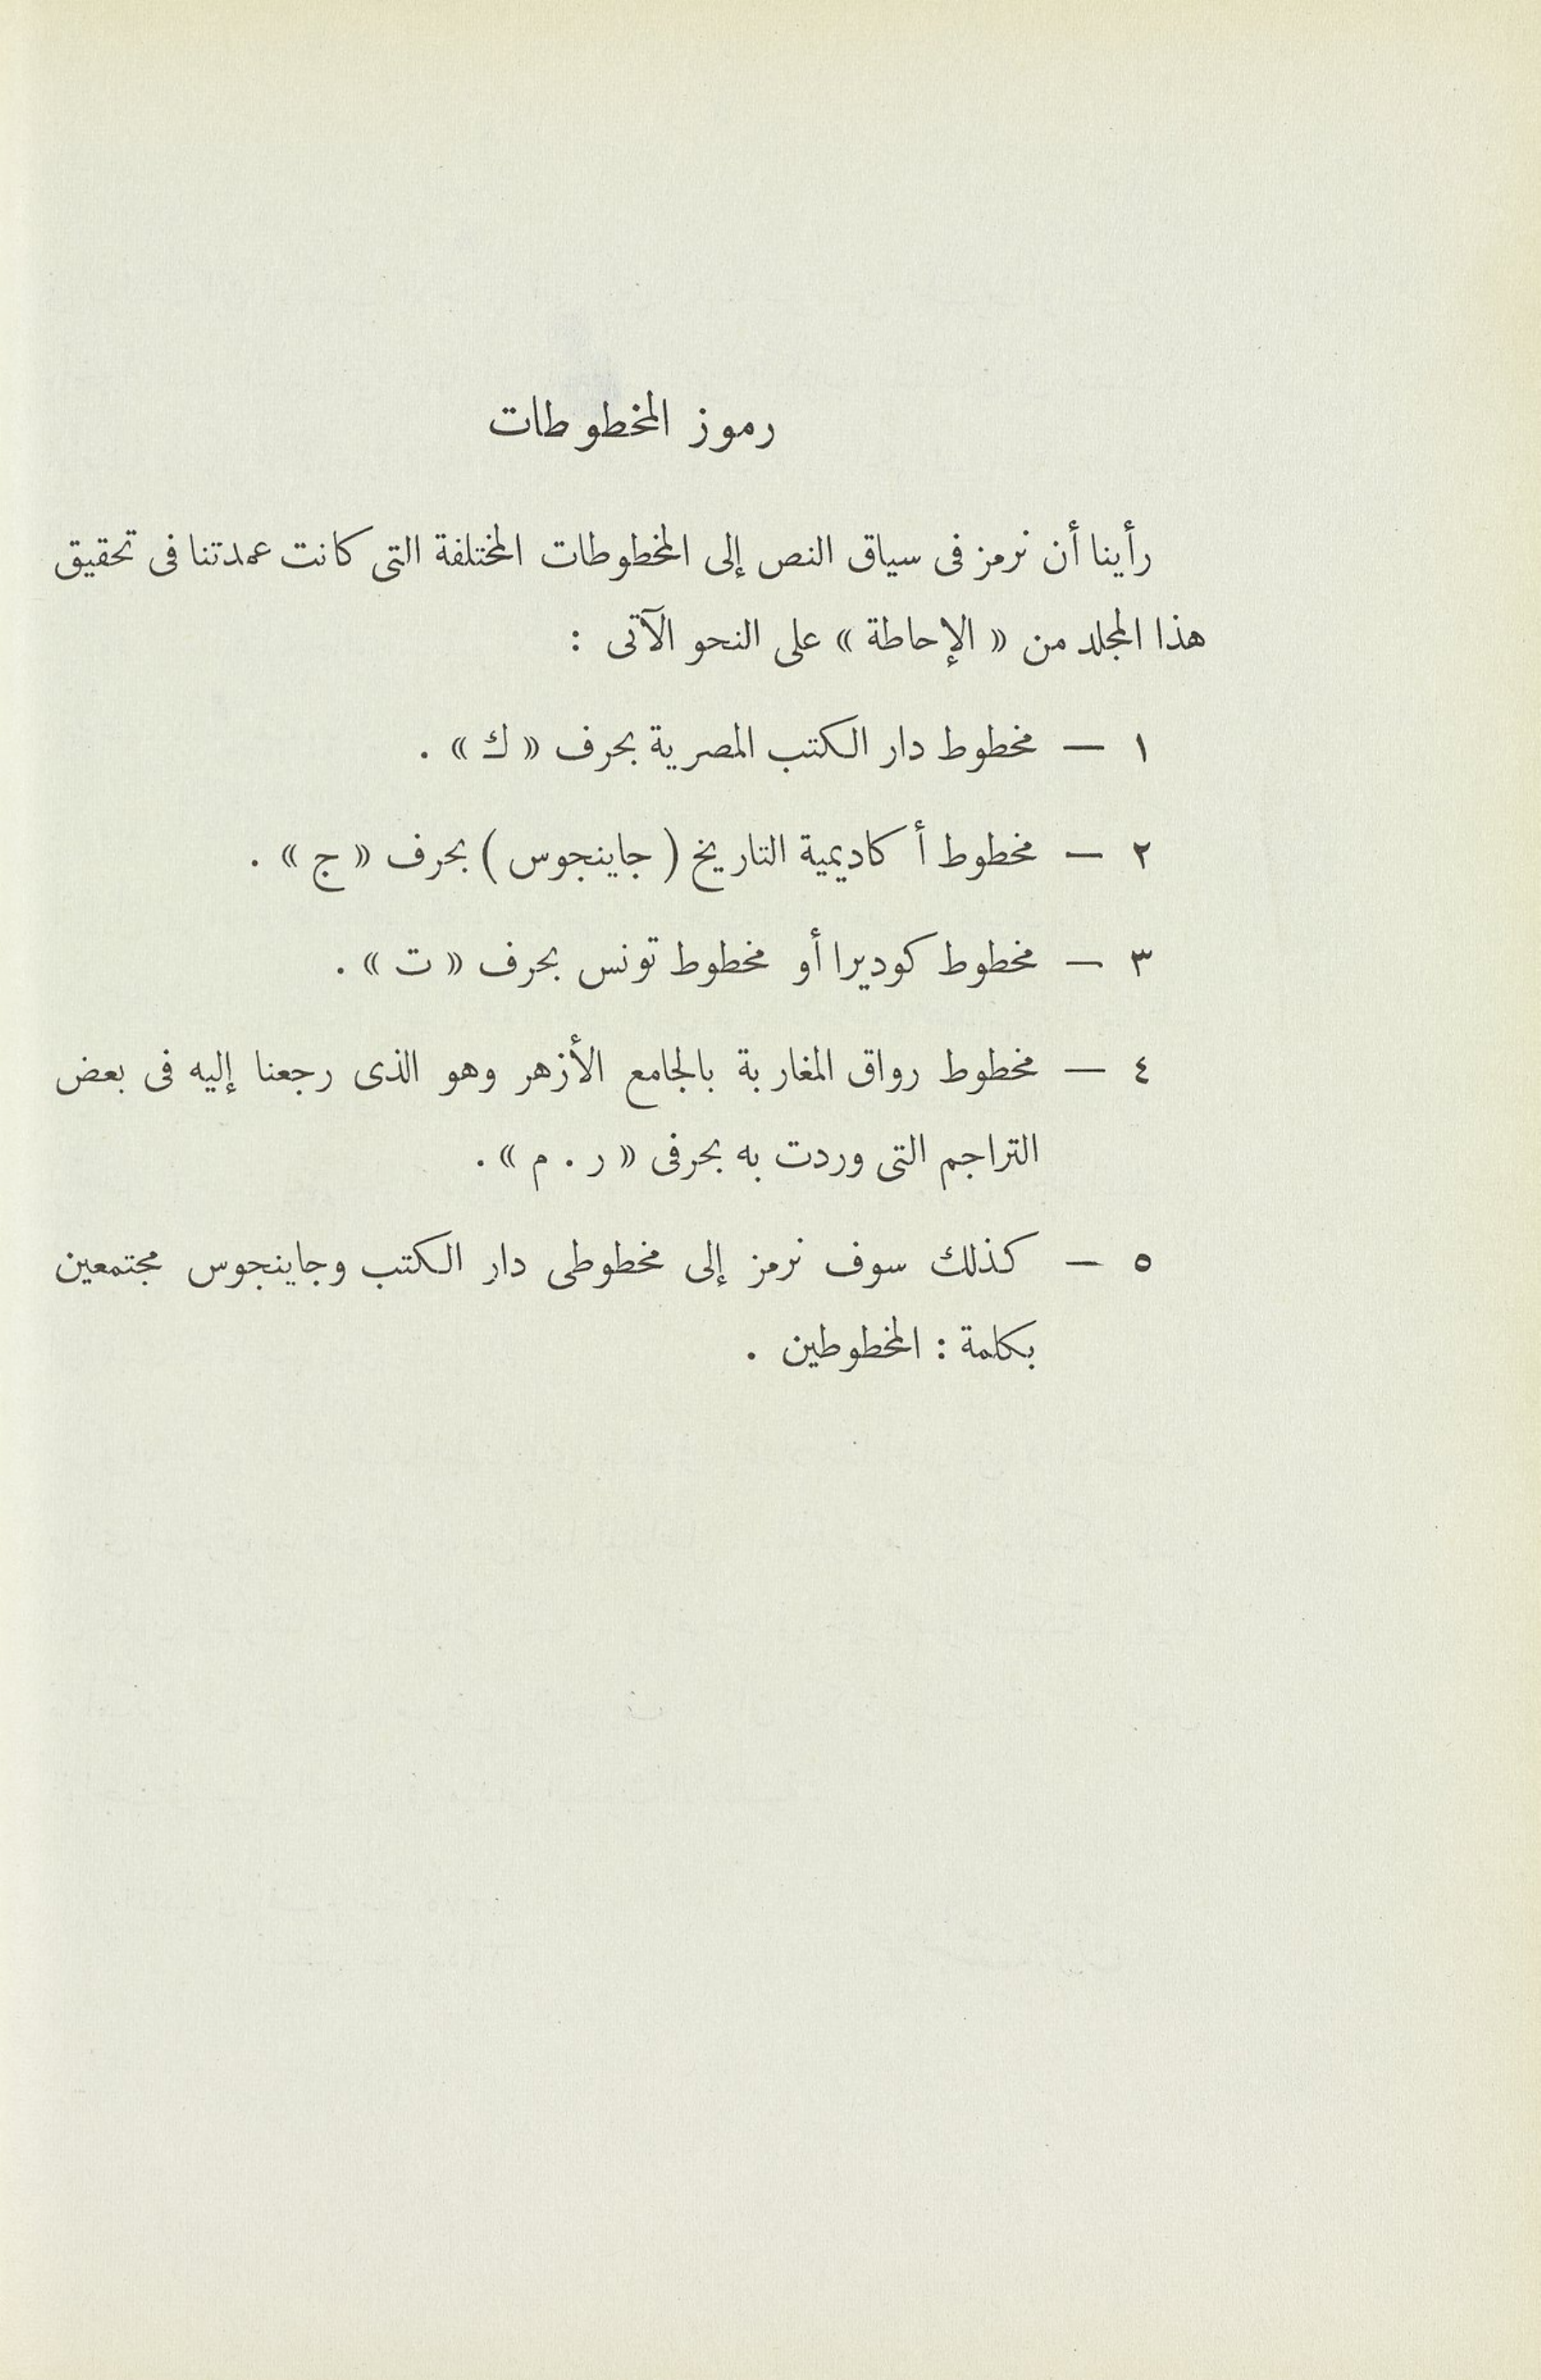 رموز المخطوطات
رأينا أن نرمز فى سياق النص إلى المخطوطات المختلفة التى كانت عمدتنا فى تحقيق
هذا المجلد من « الإحاطة » على النحو الآتى :
١ — مخطوط دار الكتب المصرية بحرف « ك » .
٢ — مخطوط أكاديمية التاريخ ( جاينجوس ) بحرف « ج » .
٣ — مخطوط كوديرا أو مخطوط تونس بحرف « ت » .
٤ — مخطوط رواق المغاربة بالجامع الأزهر وهو الذى رجعنا إليه فى بعض
التراجم التى وردت به بحرفى « ر . م » .
٥ — كذلك سوف نرمز إلى مخطوطى دار الكتب وجاينجوس مجتمعين
بكلمة : المخطوطين .